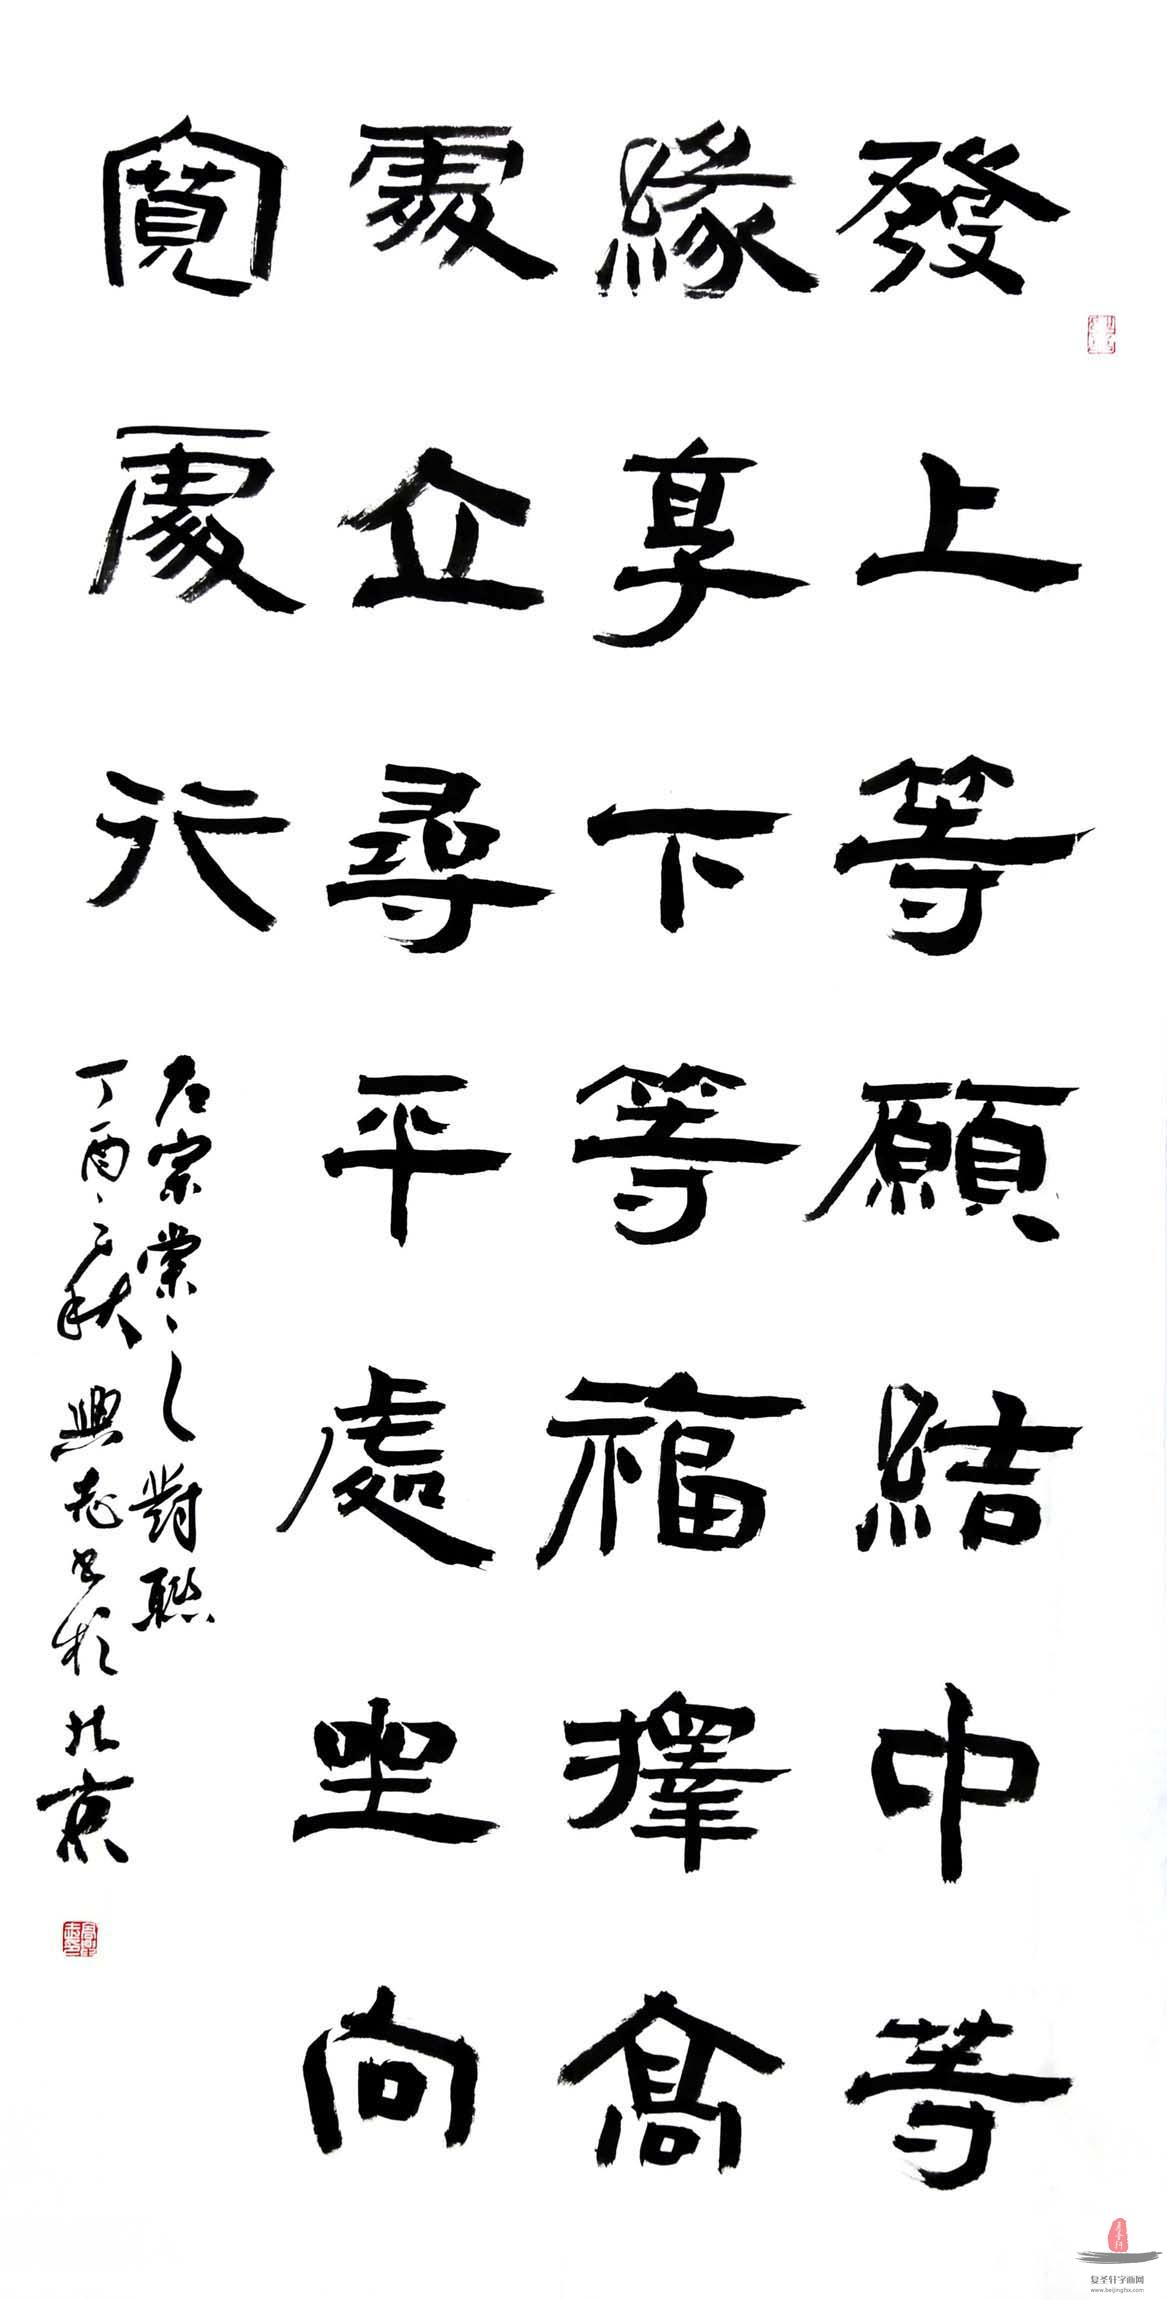 發上等願結中等
緣享下等福擇高
處立尋平處坐向
寬處行
左宗棠之對聯
丁酉之秋興志書於北京
复圣轩字画网
www.beijingfsx.com